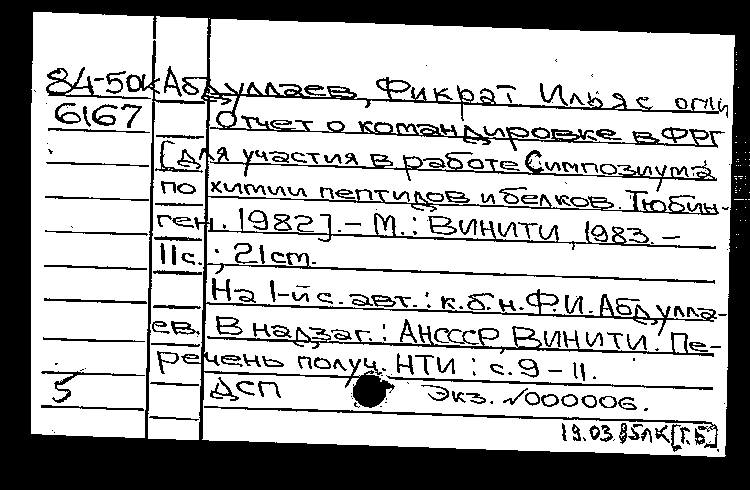 84-50к Абдуллаев, Фикрат Ильяс оглы
6167 Отчет о командировке в ФРГ
[для участия в работе Симпозиума
по химии пептидов и белков. Тюбин-
ген. 1982]. – М.: ВИНИТИ, 1983. –
11с.; 21см.
На 1-й с. авт.: к.б.н. Ф.И. Абдулла-
ев. В надзаг.: АН СССР, ВИНИТИ. Пе-
речень получ. НТИ: с. 9 – 11.
5 ДСП Экз. №000006.
19.03.85 ЛК [Г.Б.]